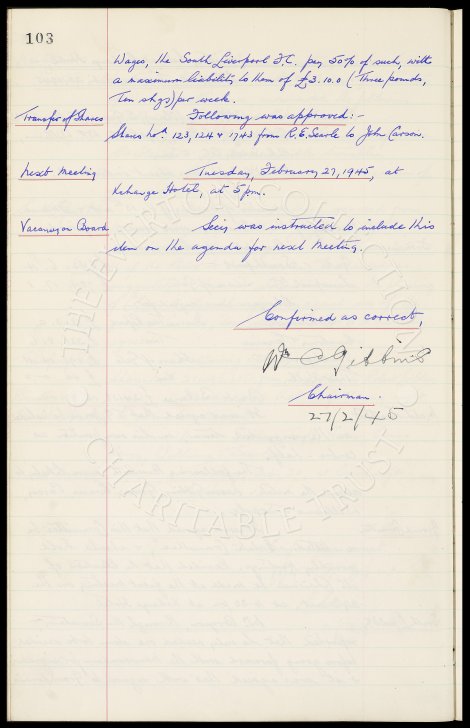 103
Wages, the South Liverpool F.C. pay 50% of such, with
a maximum liability to them of £3.10.0 (Three pounds,
Ten shgs) per week.
Transfer of Shares Following was approved:-
Shares Nos. 123, 124 & 1743 from R.E. Searle to John Carson.
Next Meeting Tuesday, February 27, 1945, at
Xchange Hotel, at 5 pm.
Vacancy on Board Secy was instructed to include this
item on the agenda for next meeting.
Confirmed as correct,
Wm C Gibbins
Chairman.
27/2/45
THE EVERTON COLLECTION
CHARITABLE TRUST